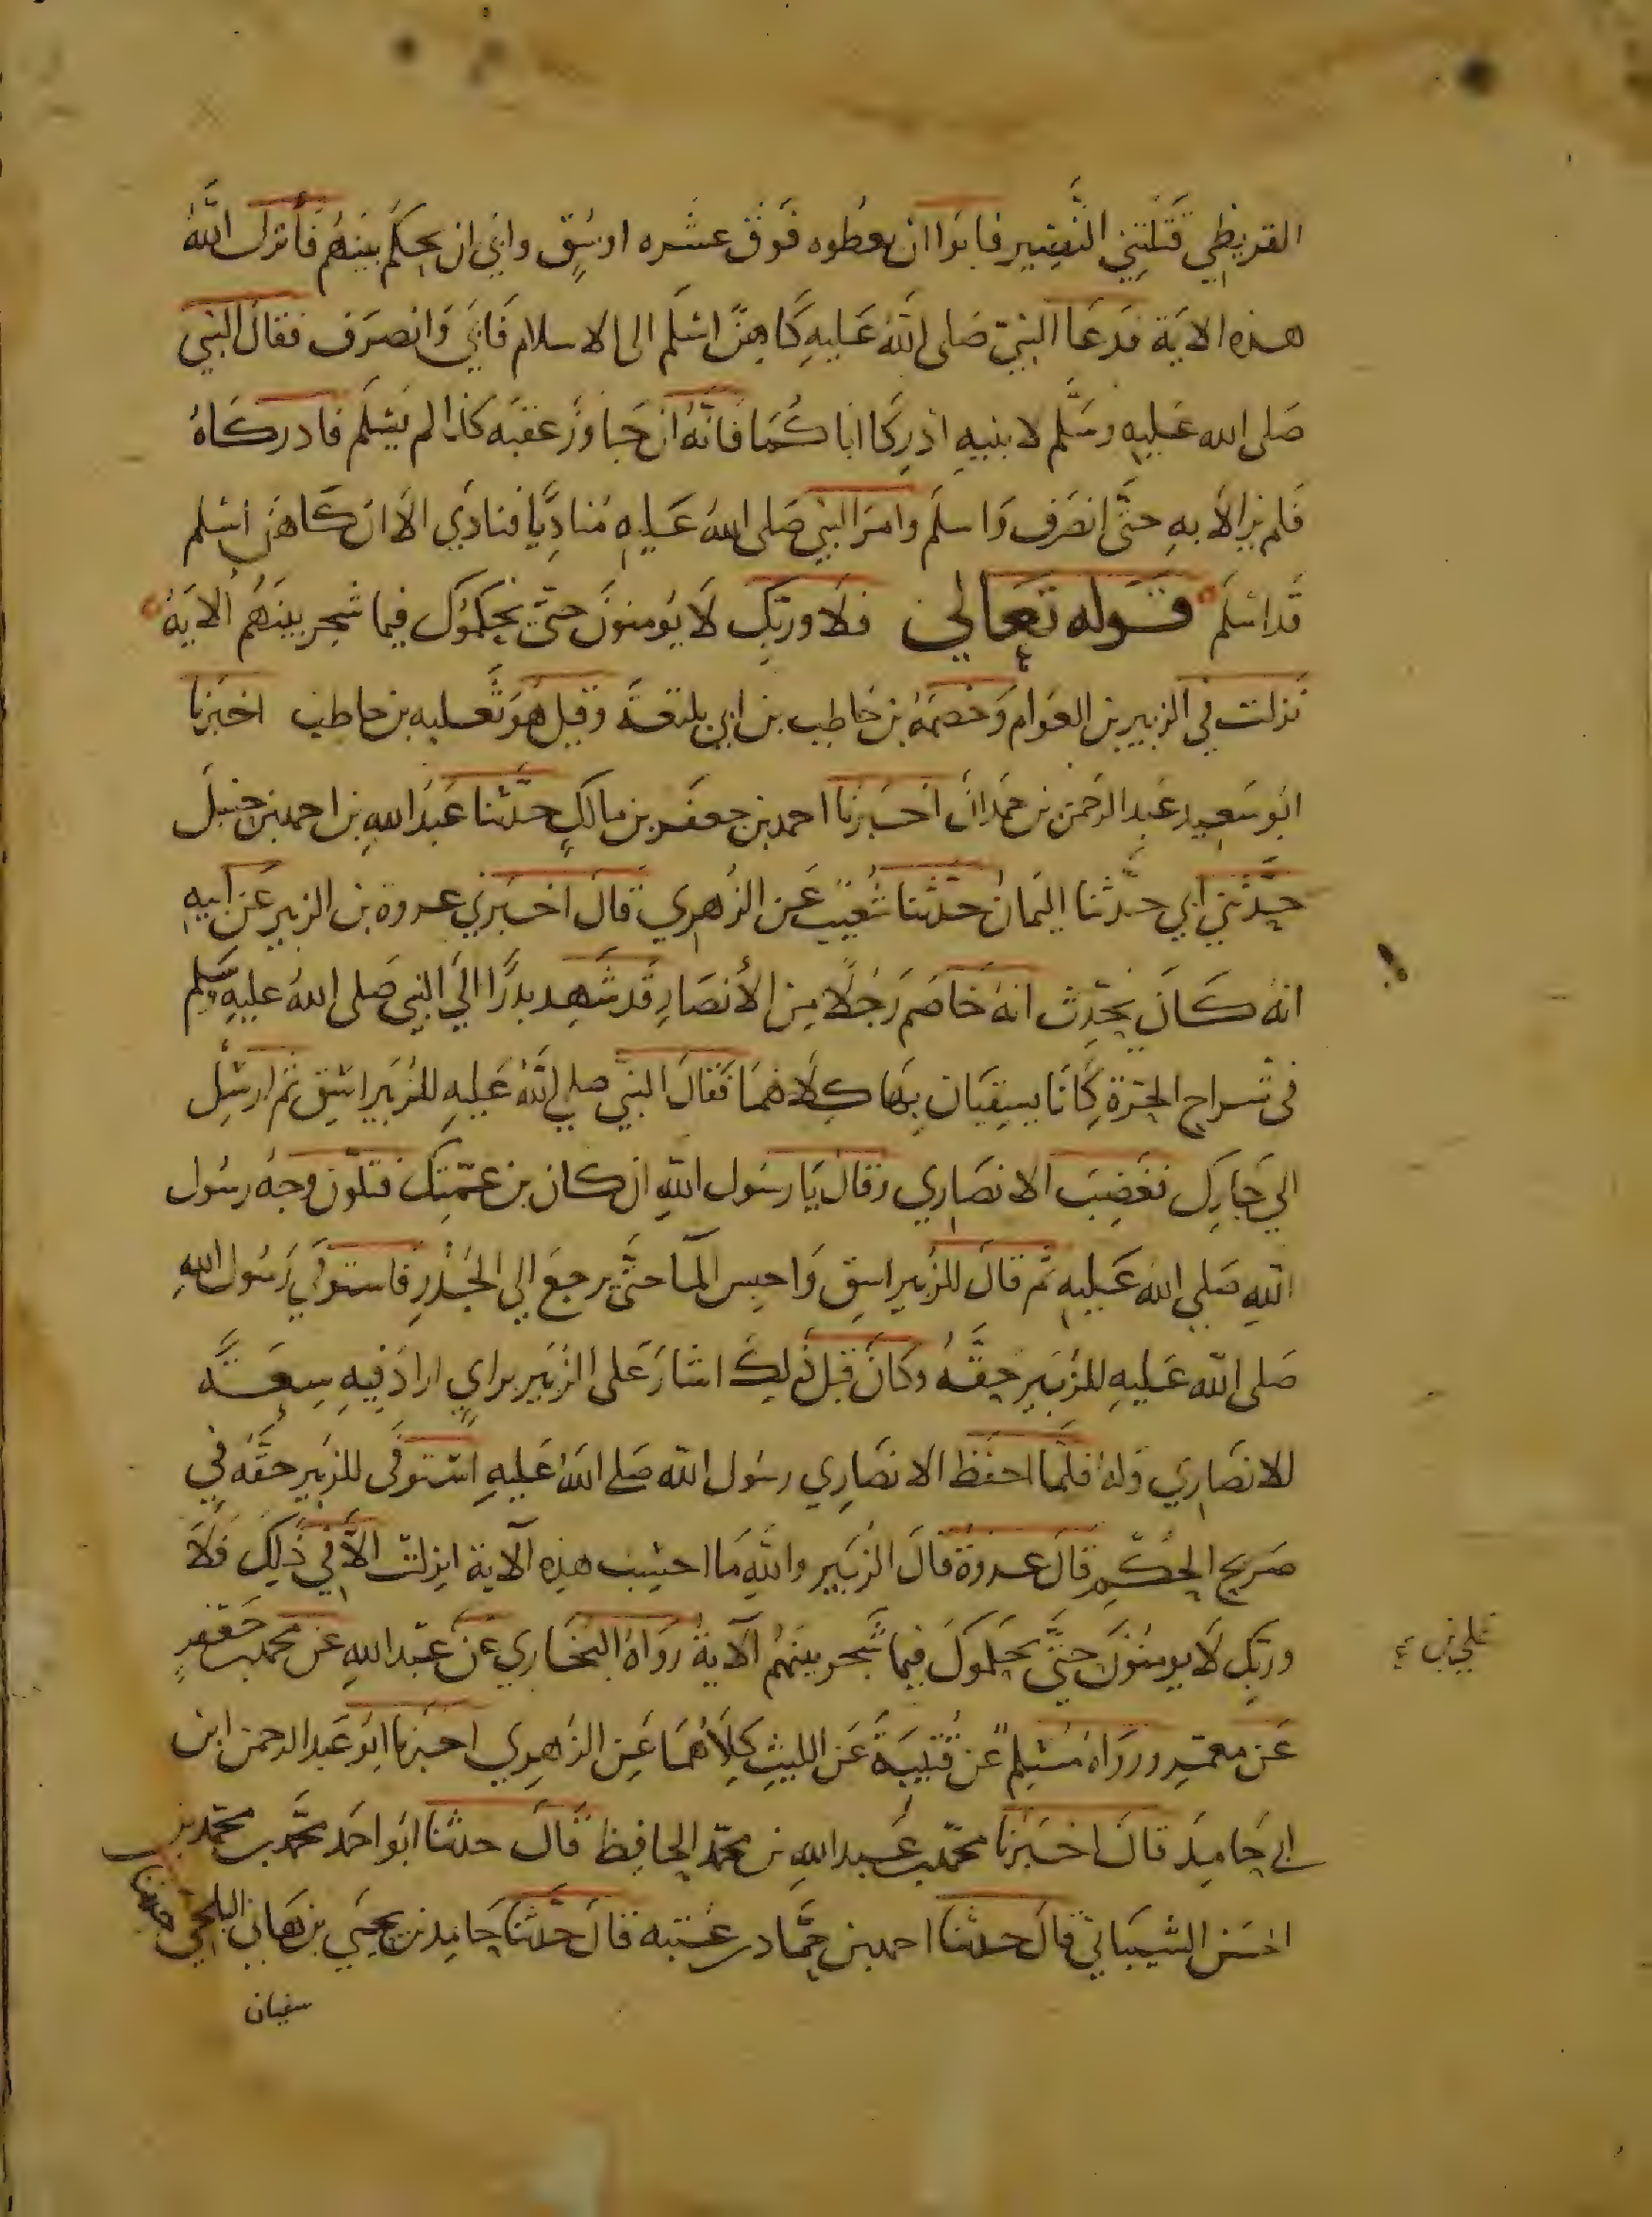 القريظي قتلتني النضير فابوا ان يعطوه فوق عشره اوسق وابى ان يحكم بينهم فأنزل الله
هذه الاية فدعا النبي صلى الله عليه كاهن اسلم الى الاسلام فابى وانصرف فقال النبي
صلى الله عليه وسلم لابنيه ادركا اباكما فانه ان جاوز عقبه كذا لم يسلم فادركاه
فلم يزالا به حتى انصرف واسلم وامر النبي صلى الله عليه مناديا فنادي الا ان كاهن اسلم
قد اسلم قوله تعالى فلا وربك لا يومنون حتى يحكموك فيما شجر بينهم الاية
نزلت في الزبير بن العوام وخصمه بن حاطب بن ابي بلتعة وقيل هو ثعلبه بن حاطب اخبرنا
ابو سعيد عبد الرحمن بن حمدان اخبرنا احمد بن جعفر بن مالك حدثنا عبد الله بن احمد بن حنبل
حدثني ابي حدثنا اليمان حدثنا شعيب عن الزهري قال اخبرني عروة بن الزبير عن ابيه
انه كان يحدث انه خاصم رجلا من الأنصار قد شهد بدرا الي النبي صلى الله عليه وسلم
في شراج الحرة كانا يسقيان بها كلاهما فقال النبي صلى الله عليه للزبير اسق ثم ارسل
الي جارك فغضب الانصاري وقال يا رسول الله ان كان بن عمتك فتلون وجه رسول
الله صلى الله عليه ثم قال للزبير اسق واحبس الما حتى يرجع الى الجدر فاستوفي رسول الله
صلى الله عليه للزبير حقه وكان قبل ذلك اشار على الزبير براي اراد فيه سعة
للانصاري وله فلما احفظ الانصاري رسول الله صلى الله عليه استوفى للزبير حقه في
صريح الحكم قال عروة قال الزبير والله ما احسب هذه الآية انزلت الا في ذلك فلا
وربك لا يومنون حتى يحكموك فيما شجر بينهم الآية رواه البخاري عن عبد الله عن محمد بن جعفر
عن معمر ورواه مسلم عن قتيبة عن الليث كلاهما عن الزهري اخبرنا ابو عبد الرحمن ابن
ابي حامد قال اخبرنا محمد بن عبد الله بن محمد الحافظ قال حدثنا ابو احمد محمد بن محمد بن
الحسن الشيباني قال حدثنا احمد بن حماد عتبه قال حدثنا حامد بن يحيى بن هاني البلخي حدثنا
سفيان